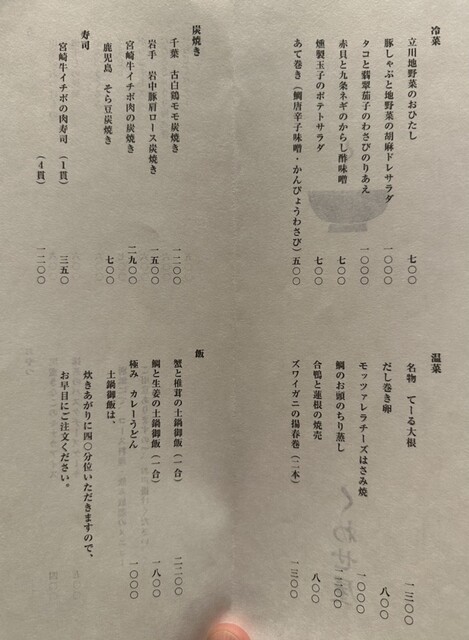 冷菜
立川地野菜のおひたし 七〇〇
豚しゃぶと地野菜の胡麻ドレサラダ 一〇〇〇
タコと翡翠茄子のわさびのりあえ 一〇〇〇
赤貝と九条ネギのからし酢味噌 七〇〇
燻製玉子のポテトサラダ 七〇〇
あて巻き(鯛唐辛子味噌・かんぴょうわさび)五〇〇
炭焼き
千葉 古白鶏モモ炭焼き 一二〇〇
岩手 岩中豚肩ロース炭焼き 一五〇〇
宮崎牛イチボの肉の炭焼き 二九〇〇
鹿児島 そら豆炭焼き 七〇〇
寿司
宮崎牛イチボの肉寿司 (1貫) 三五〇
(4貫) 一二〇〇
温菜
名物 てーる大根 一三〇〇
だし巻き卵 八〇〇
モッツァレラチーズはさみ焼 一〇〇〇
鯛のお頭のちり蒸し
合鴨と蓮根の焼売 八〇〇
ズワイガニの揚春巻(二本) 一三〇〇
飯
蟹と椎茸の土鍋御飯(一合) 二二〇〇
鯛と生姜の土鍋御飯(一合) 一八〇〇
極み カレーうどん 一〇〇〇
土鍋御飯は、
炊きあがりに四〇分位いただきますので、
お早目にご注文ください。